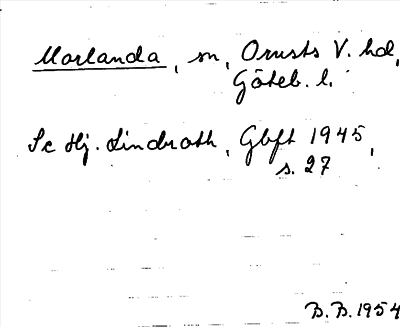 Morlanda, sn, Orusts V. hd,
Göteb. l.
Se Hj. Lindroth, Gbft 1945,
s. 27
B. B. 1954